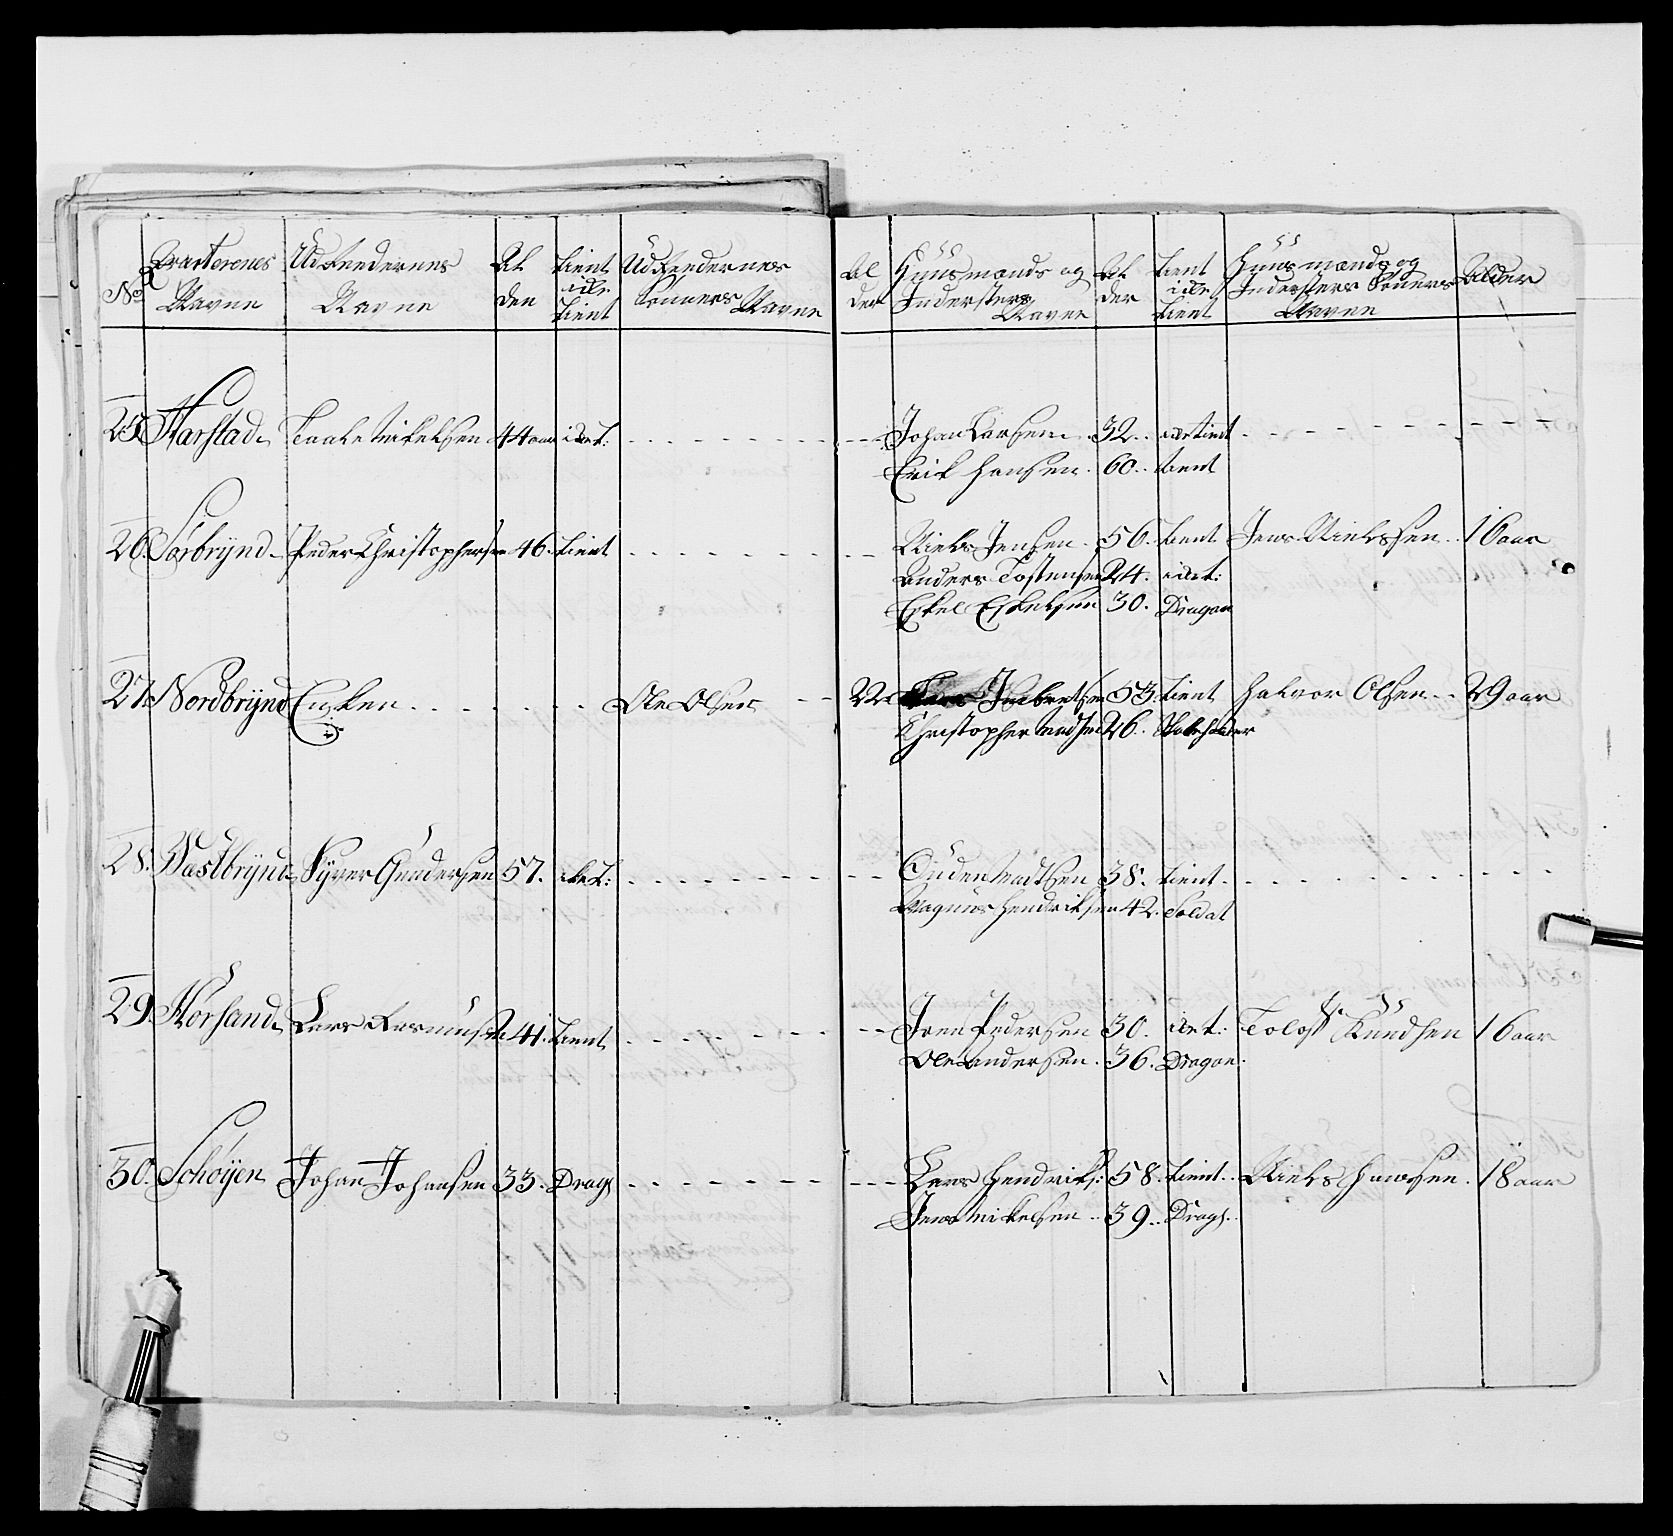 No Qvarterenes Navne Udreedernes Navne Alderen tient icke tient Udreedernes Sönners Navne Alder Huusmænds og Inderster Navne Alder tient icke tient Huusmænds og Indersters Sönners Navne Alder
25. Harstad Mikelsen 44 aar ict: Johan Larsen 32. tient
Erik Hansen 60. tient
26. Sörbrÿnd Peder Christophersen 46. tient Niels Jensen 56. tient Jens Nielssen 16 aar
Anders Tostensen 24. ict:
Eskel Eskelsen 30. Dragon
27. Nordbrÿnd Enken Ole Olsen 22 53. tient Halvor Olsen 29 aar
Christopher Madsen 26.
28. Wastbrÿnd Sÿver Gundersen 57. ict: Madtsen 38. tient
Magnus Hendriksen 42. Soldat
29. Hörsand Lars Rasmusen 41. tient Joen Pedersen 30. ict: Knudsen 16 aar
Ole Andersen 36. Dragon:
30. Schöÿen Johan Johansen 33. Drag: Lars Hendriks: 58. tient Niels Hansen 18 aar
Jens Mikelsen 39. Drag: